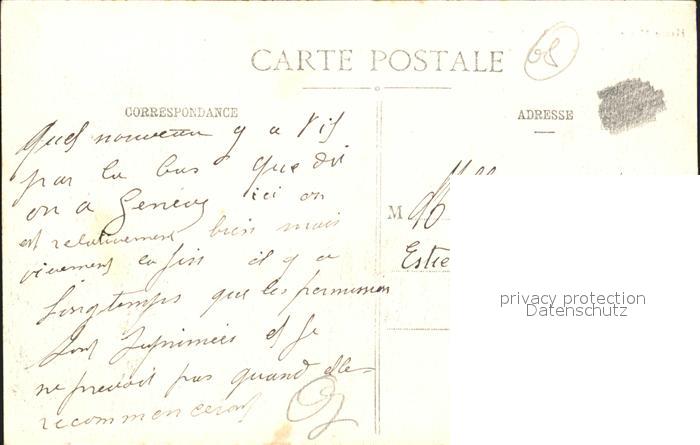 08
CARTE POSTALE
CORRESPONDANCE
ADRESSE
Quel nouveau y a t'il
par la bas que dit
on a Genève ici on
est relativement bien mais
vivement la fin il y a
longtemps que les permission
sont suprimées et je
ne prevoit pas quand elle
recommenceront
M
Estie
privacy protection
Datenschutz